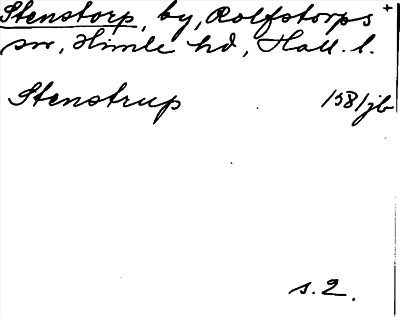 Stenstorp, by, Rolfstorps +
sn, Himle hd, Hall. l.
Stenstrup 1581 jb
s. 2.